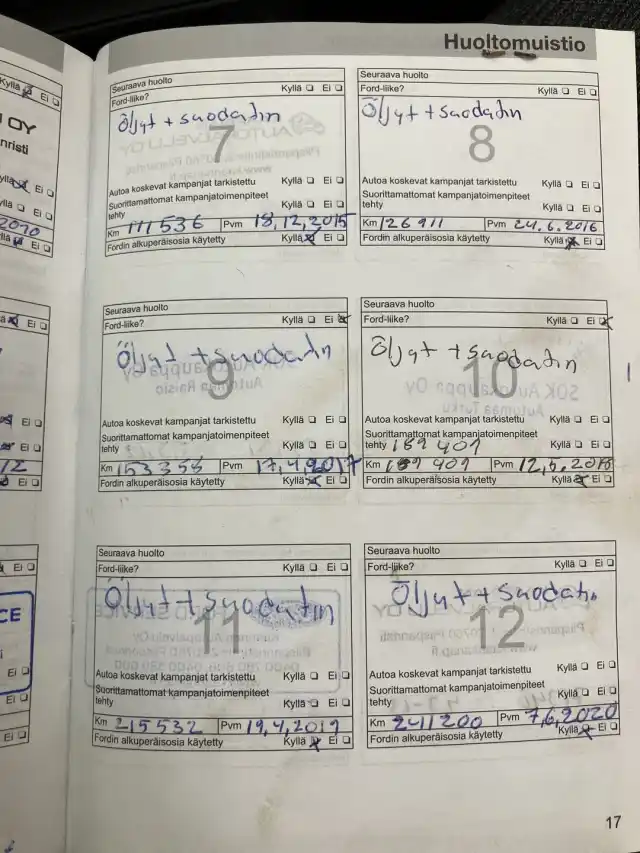 Huoltomuistio
Seuraava huolto
Ford-liike? Kyllä Ei
Öljyt + suodatin
7
Autoa koskevat kampanjat tarkistettu Kyllä Ei
Suorittamattomat kampanjatoimenpiteet
tehty Kyllä Ei
Km 111536 Pvm 18,12,2015
Fordin alkuperäisosia käytetty Kyllä Ei
Seuraava huolto
Ford-liike? Kyllä Ei
Öljyt + suodatin
8
Autoa koskevat kampanjat tarkistettu Kyllä Ei
Suorittamattomat kampanjatoimenpiteet
tehty Kyllä Ei
Km 126911 Pvm 24.6.2016
Fordin alkuperäisosia käytetty Kyllä Ei
Seuraava huolto
Ford-liike? Kyllä Ei
Öljyt + suodatin
9
Autoa koskevat kampanjat tarkistettu Kyllä Ei
Suorittamattomat kampanjatoimenpiteet
tehty Kyllä Ei
Km 153358 Pvm 17,4,2017
Fordin alkuperäisosia käytetty Kyllä Ei
Seuraava huolto
Ford-liike? Kyllä Ei
Öljyt + suodatin
10
Autoa koskevat kampanjat tarkistettu Kyllä Ei
Suorittamattomat kampanjatoimenpiteet
tehty 189401 Kyllä Ei
Km Pvm 12,5,2018
Fordin alkuperäisosia käytetty Kyllä Ei
Seuraava huolto
Ford-liike? Kyllä Ei
Öljyt + suodatin
11
Autoa koskevat kampanjat tarkistettu Kyllä Ei
Suorittamattomat kampanjatoimenpiteet
tehty Kyllä Ei
Km 215532 Pvm 19,4,2019
Fordin alkuperäisosia käytetty Kyllä Ei
Seuraava huolto
Ford-liike? Kyllä Ei
Öljyt + suodatin
12
Autoa koskevat kampanjat tarkistettu Kyllä Ei
Suorittamattomat kampanjatoimenpiteet
tehty Kyllä Ei
Km 241200 Pvm 7,6,2020
Fordin alkuperäisosia käytetty Kyllä Ei
17